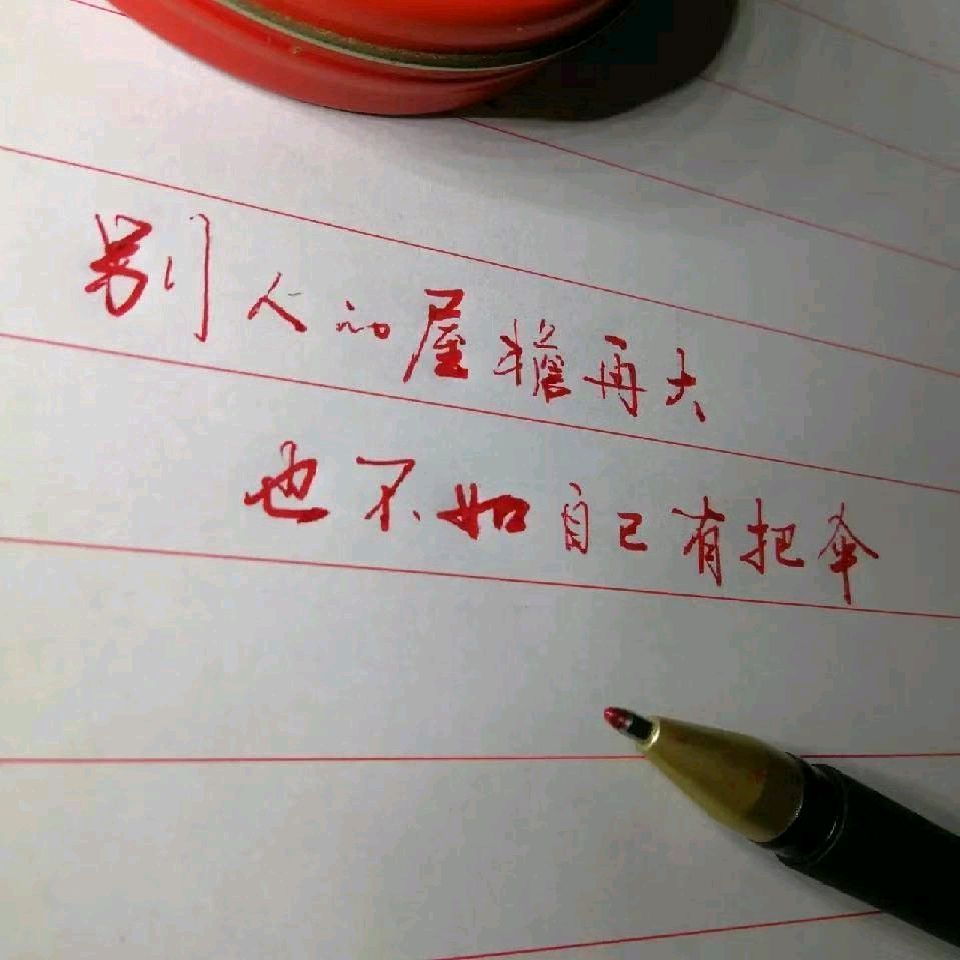 别人的屋檐再大
也不如自己有把伞